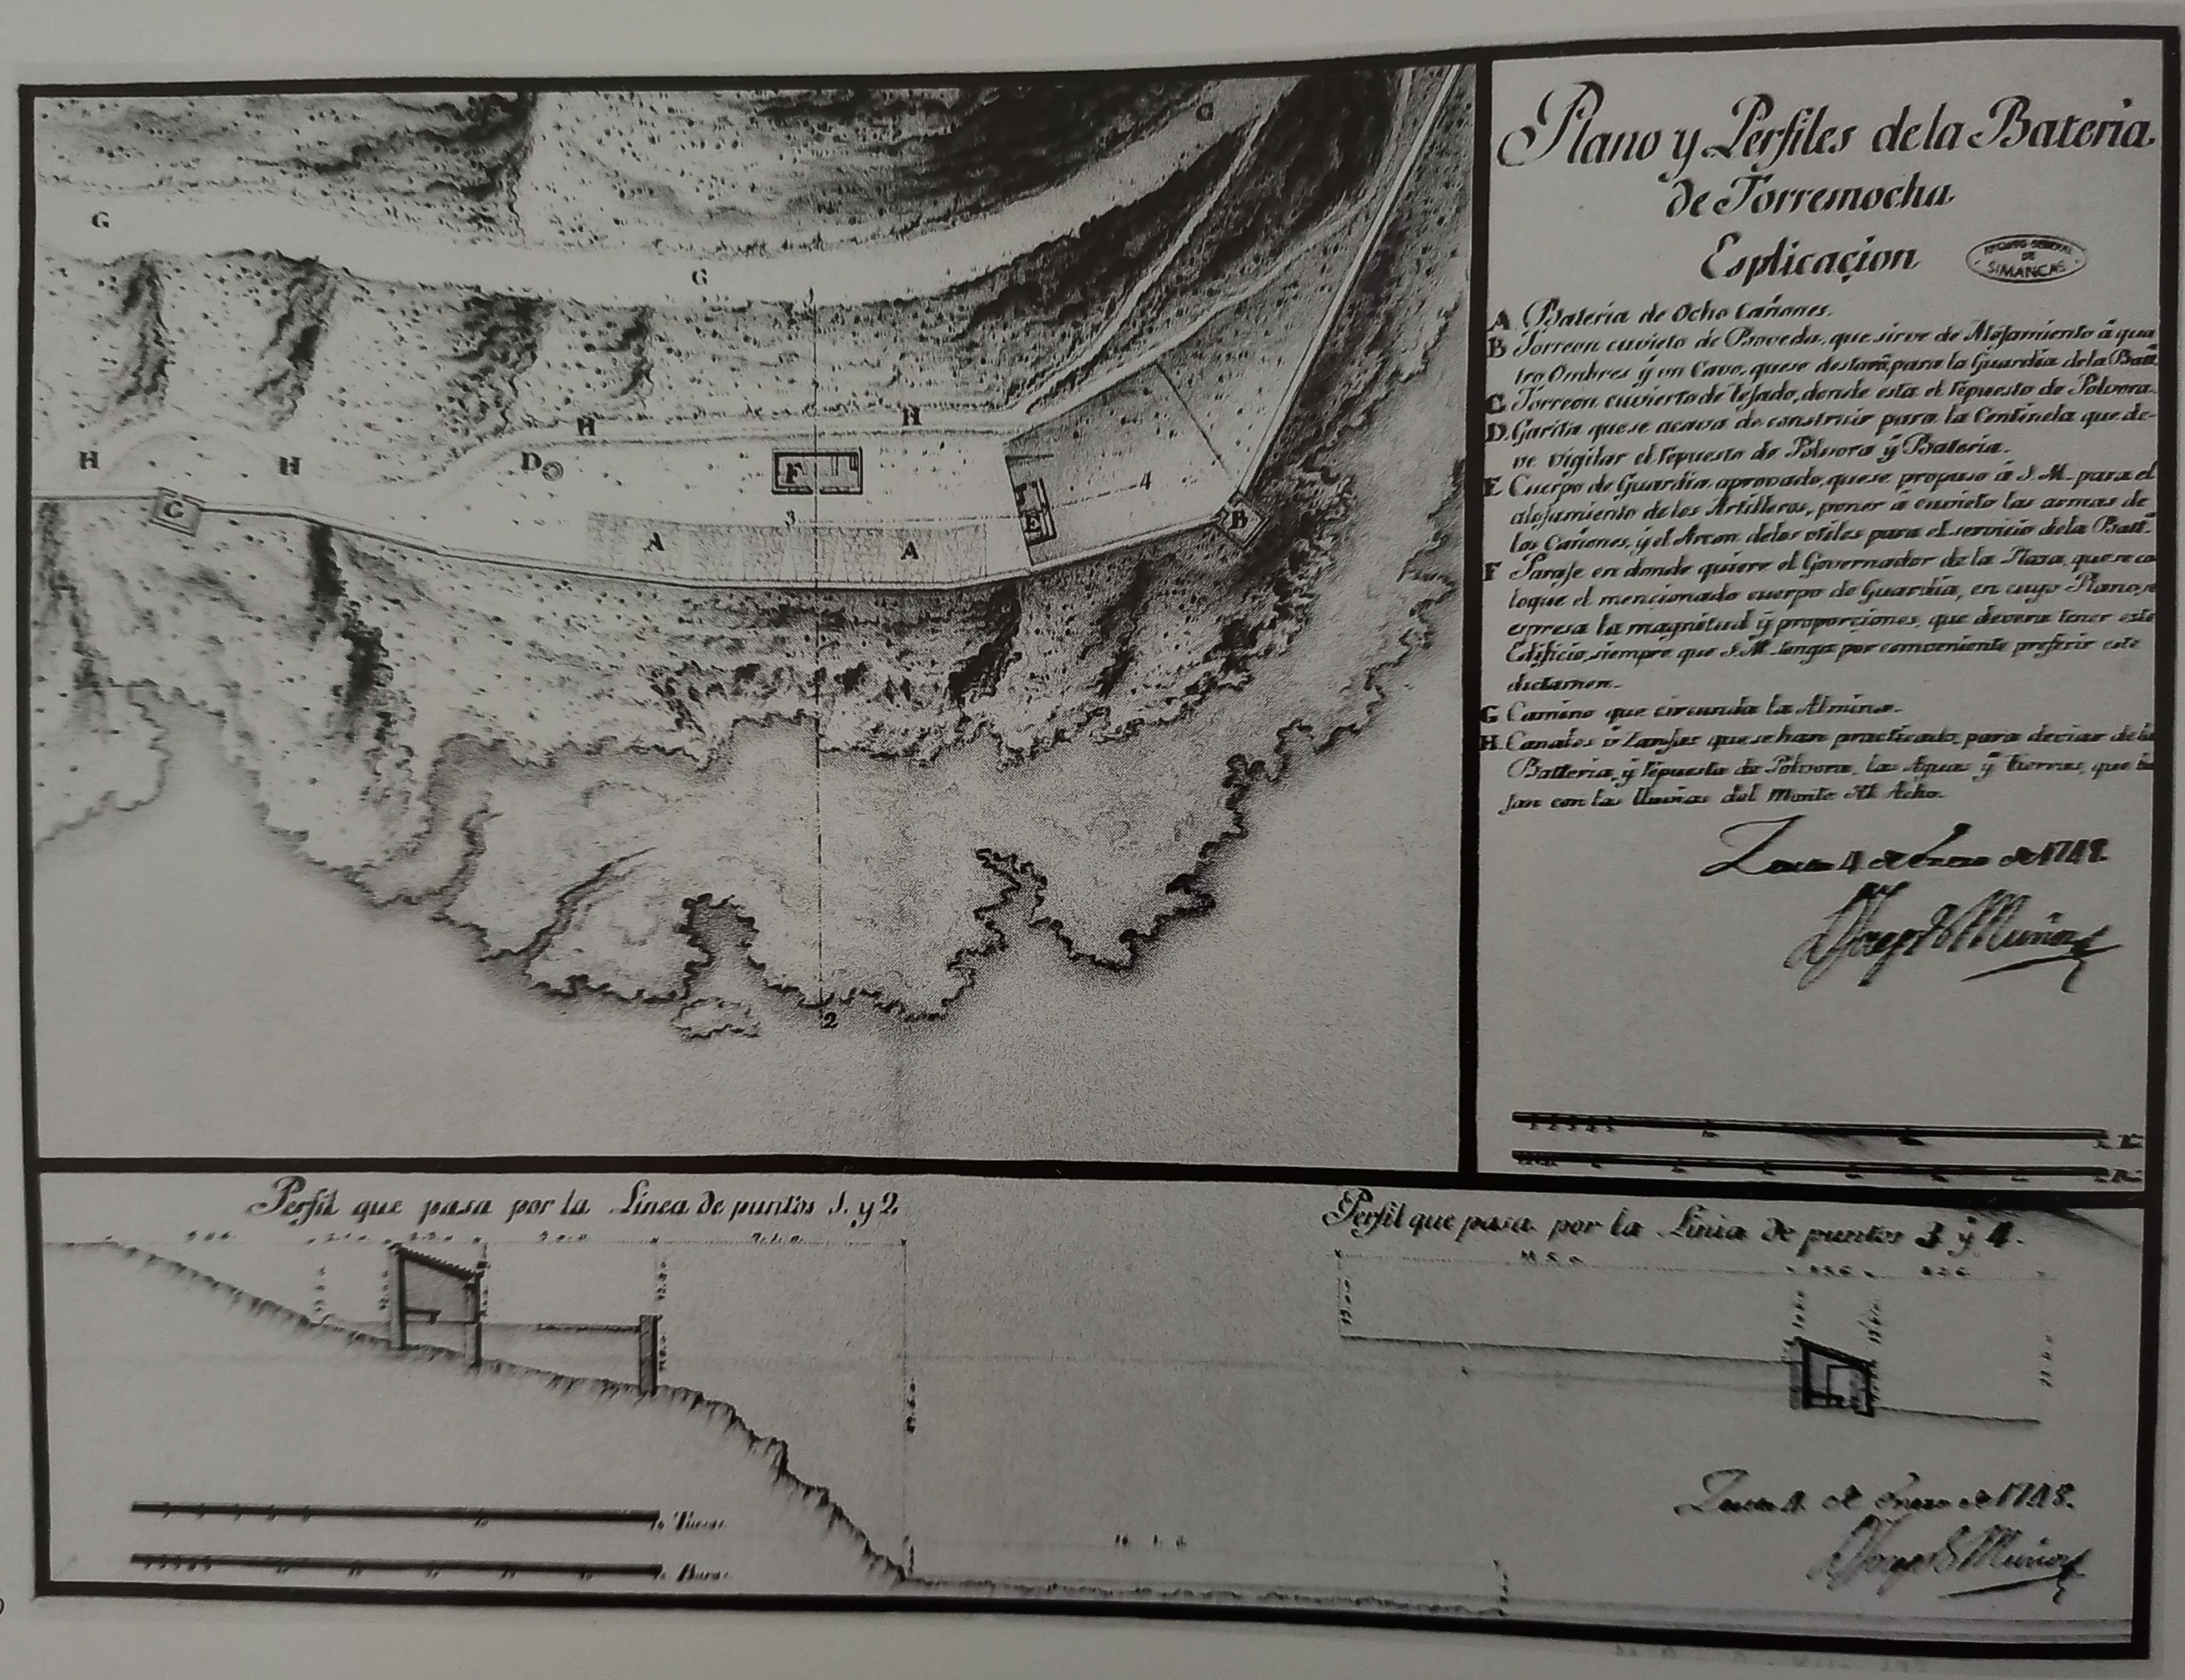 Plano y Perfiles de la Bateria
de Torremocha
Esplicaçion
ARCHIVO GENERAL
DE
SIMANCAS
A Bateria de Ocho Cañones.
B Torreon cuvieto de Boveda, que sirve de Alojamiento á qua
tro Ombres ÿ un Cavo, que se para la Guardia de la Batt.
C Torreon cuvierto de Tejado, donde esta el repuesto de Polvora.
D. Garita que se acava de construir para la Centinela que de-
ve vigilar el repuesto de Polvora ÿ Bateria.
E Cuerpo de Guardia aprovado, que se propuso á S. M. para el
alojamiento de los Artilleros, poner á cuvieto las armas de
los Cañones, ÿ el Arcon de los vtiles para el servicio de la Batt.
F Paraje en donde quiere el Governador de la Plaza, que se co
loque el mencionado cuerpo de Guardia, en cuyo Plano, se
espresa la magnitud ÿ proporçiones, que devera tener este
Edificio, siempre que S.M. tenga por conveniente preferir este
dictamen.
G Camino que circunda la Almina.
H. Canales ò Zanjas que se han practicado, para deviar de la
Batteria, ÿ repuesto de Polvora, las Aguas ÿ tierras, que ba
jan con las lluvias del Monte del Acho.
4 de Enero de 1748.
Muñoz
G
G
G
H
H
H
H
D
F
C
3
A
A
E
4
B
2
Perfil que pasa por la Linea de puntos 1. y 2.
Perfil que pasa por la Linia de puntos 3 ÿ 4.
Tuesas
Baras
4 de Enero de 1748.
Muñoz